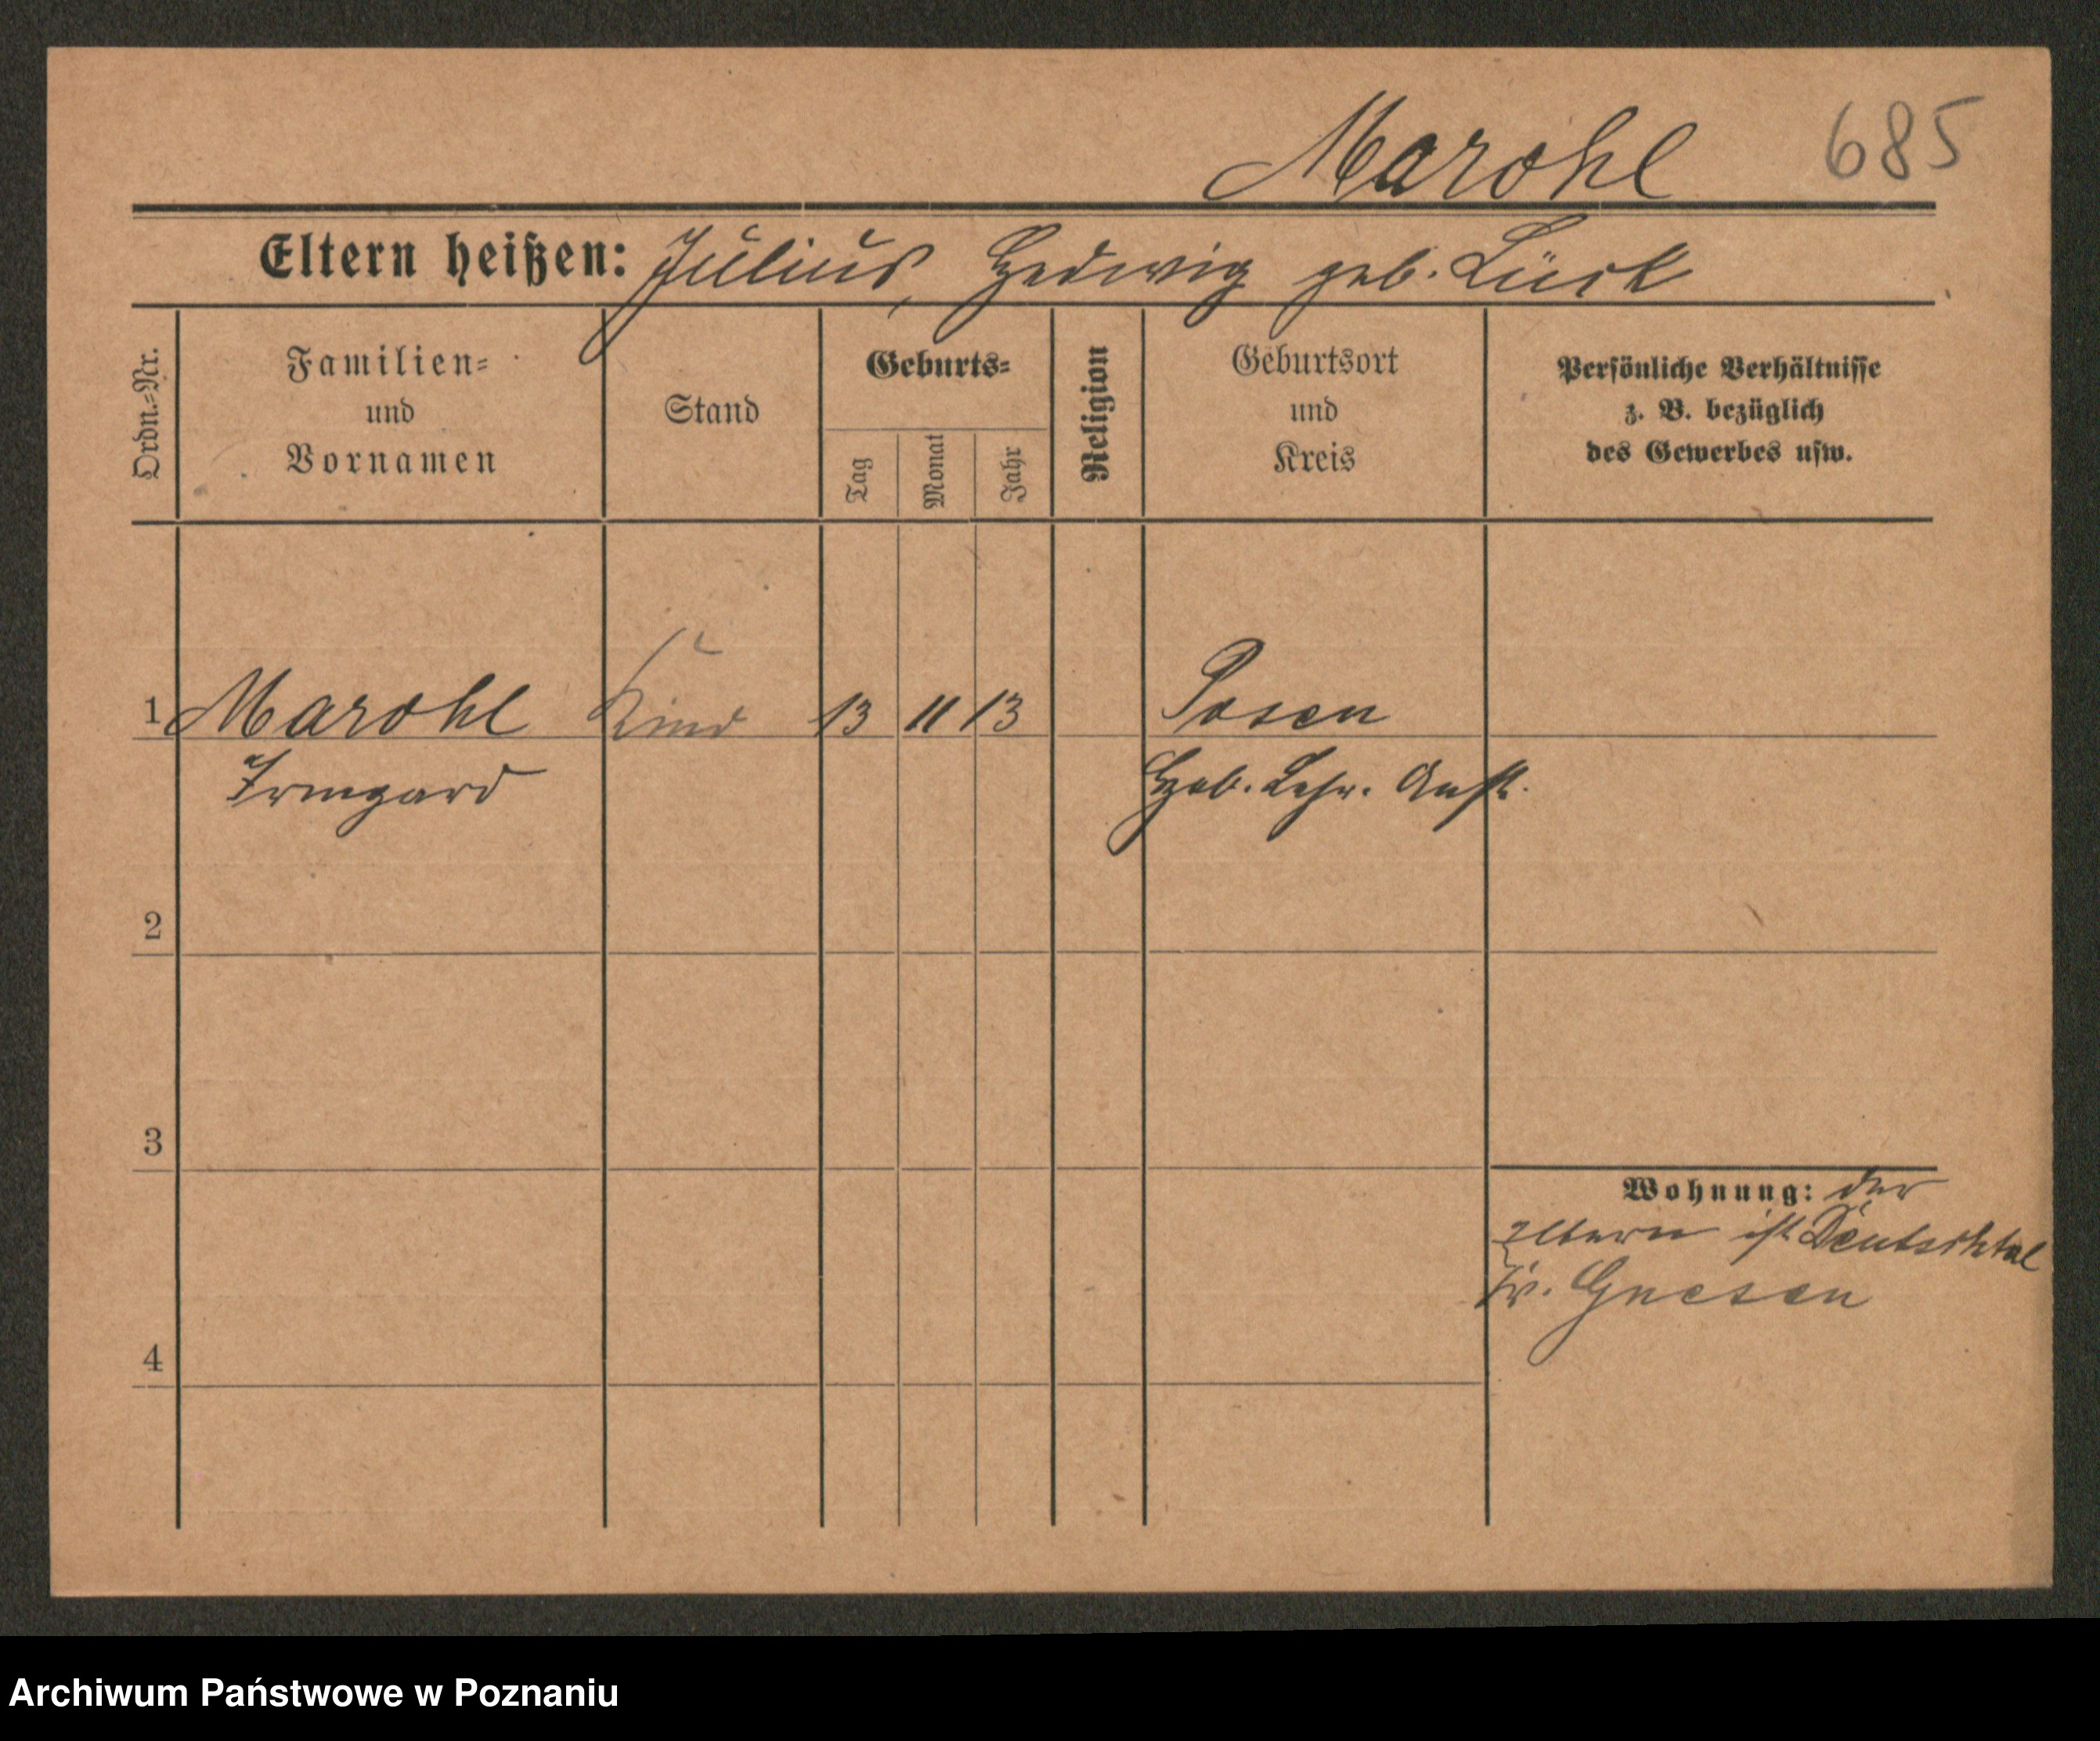 Marohl 685
Eltern heißen: Julius, Hedwig geb. Lück
Ordn.-Nr.
Familien-
und
Vornamen
Stand
Geburts-
Tag
Monat
Jahr
Religion
Geburtsort
und
Kreis
Persönliche Verhältnisse
z. B. bezüglich
des Gewerbes usw.
1 Marohl Kind 13 11 13 Posen
Irmgard Heb. Lehr. Anst.
2
3
Wohnung: der
Eltern ist Deutschtal
Kr. Gnesen
4
Archiwum Państwowe w Poznaniu